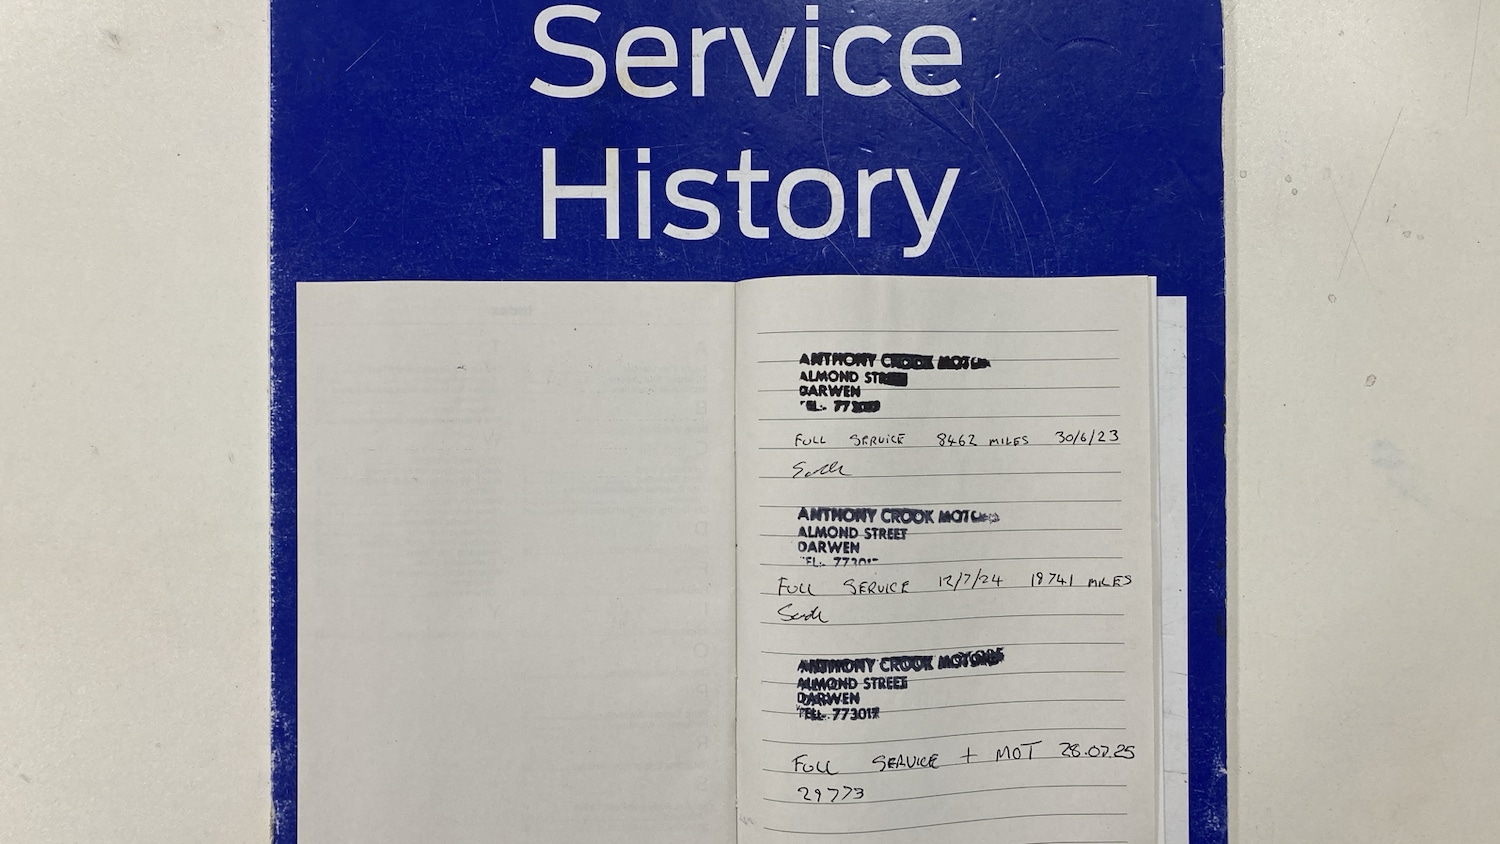 Service
History
ANTHONY CROOK
ALMOND STREET
DARWEN
FULL SERVICE 8462 MILES 30/6/23
ANTHONY CROOK
ALMOND STREET
DARWEN
FULL SERVICE 12/7/24 18741 MILES
ANTHONY CROOK MOTORS
ALMOND STREET
DARWEN
TEL:- 773017
FULL SERVICE + MOT 28.07.25
29773